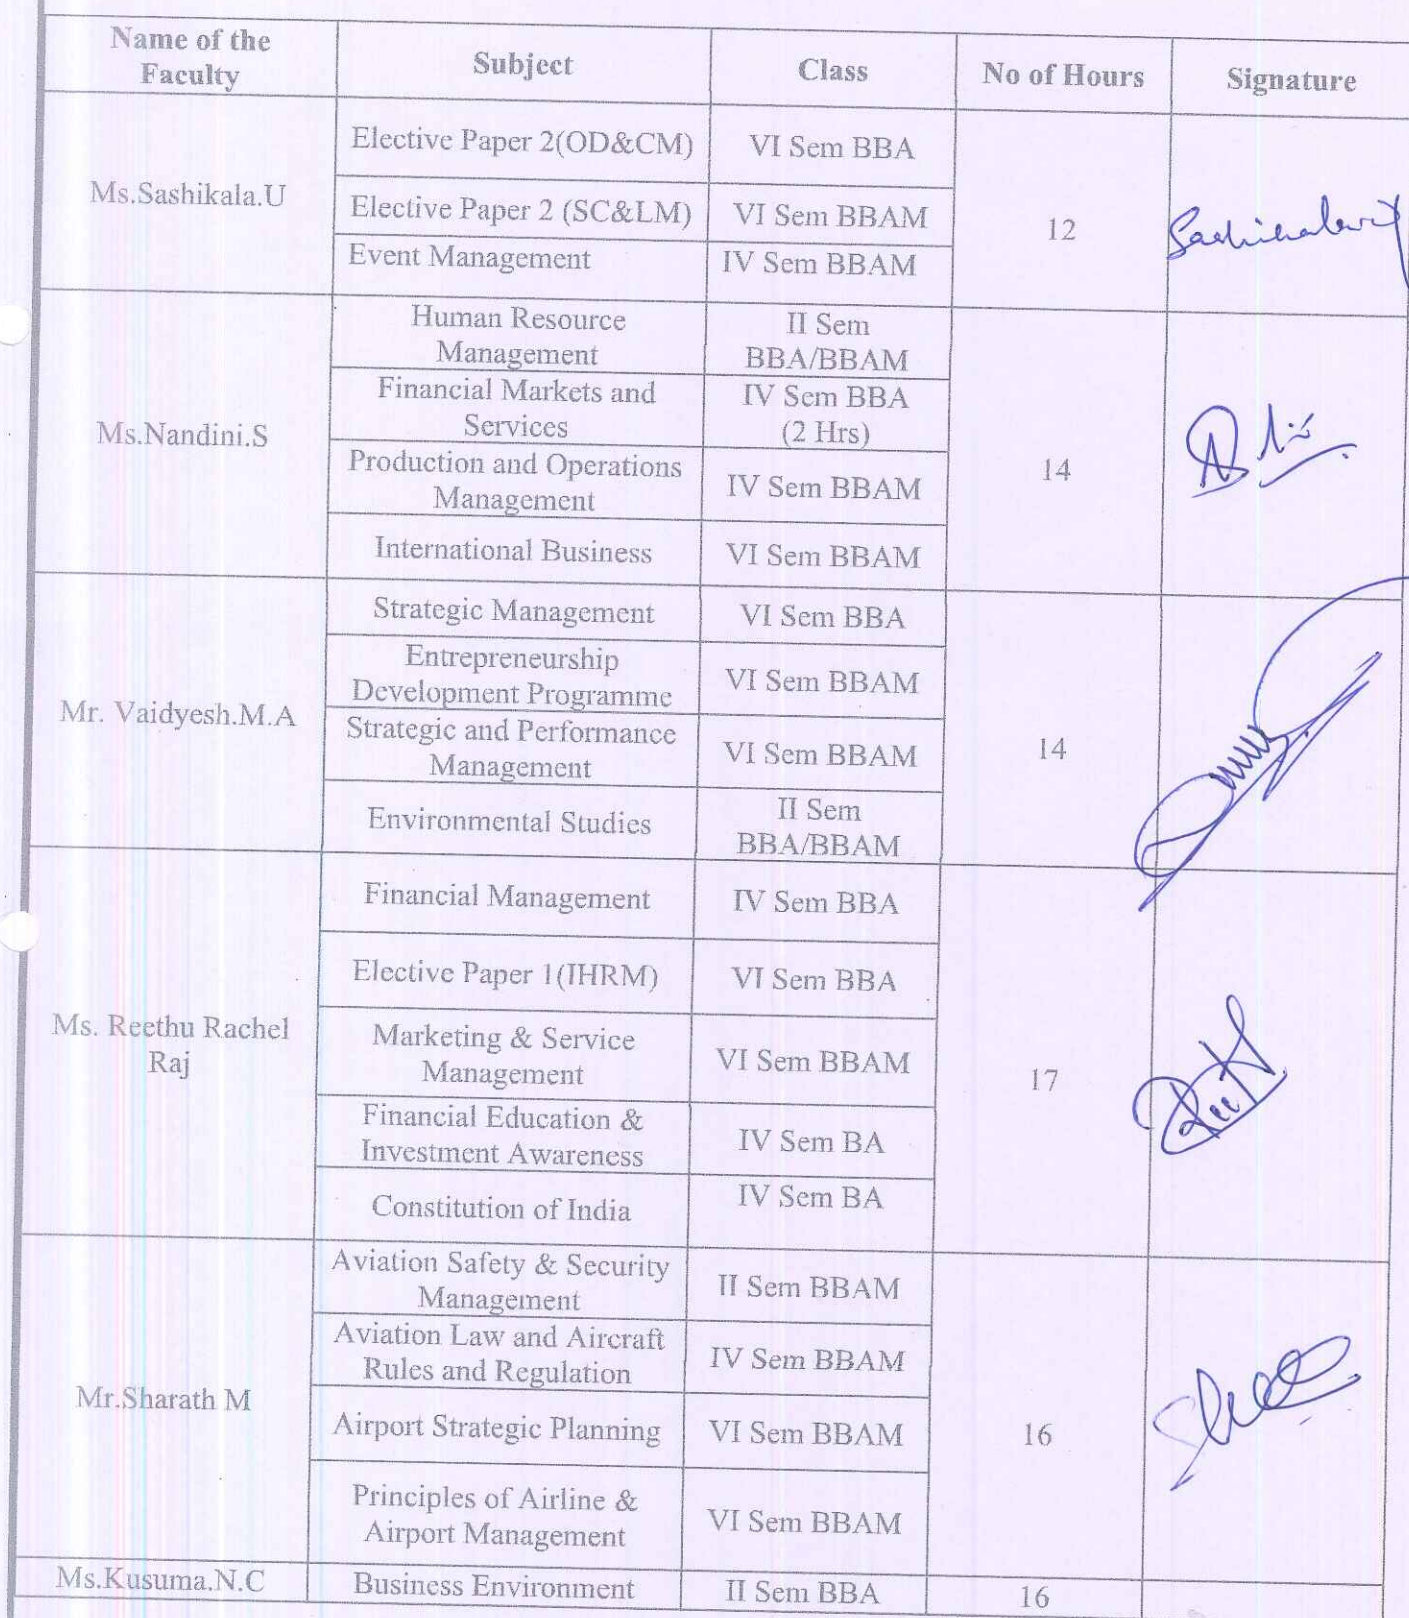 Name of the
Faculty
Subject
Class
No of Hours
Signature
Ms.Sashikala.U
Elective Paper 2(OD&CM)
VI Sem BBA
Elective Paper 2 (SC&LM)
VI Sem BBAM
Event Management
IV Sem BBAM
12
Ms.Nandini.S
Human Resource
Management
II Sem
BBA/BBAM
Financial Markets and
Services
IV Sem BBA
(2 Hrs)
Production and Operations
Management
IV Sem BBAM
International Business
VI Sem BBAM
14
Mr. Vaidyesh.M.A
Strategic Management
VI Sem BBA
Entrepreneurship
Development Programme
VI Sem BBAM
Strategic and Performance
Management
VI Sem BBAM
Environmental Studies
II Sem
BBA/BBAM
14
Ms. Reethu Rachel
Raj
Financial Management
IV Sem BBA
Elective Paper 1(IHRM)
VI Sem BBA
Marketing & Service
Management
VI Sem BBAM
Financial Education &
Investment Awareness
IV Sem BA
Constitution of India
IV Sem BA
17
Mr.Sharath M
Aviation Safety & Security
Management
II Sem BBAM
Aviation Law and Aircraft
Rules and Regulation
IV Sem BBAM
Airport Strategic Planning
VI Sem BBAM
Principles of Airline &
Airport Management
VI Sem BBAM
16
Ms.Kusuma.N.C
Business Environment
II Sem BBA
16